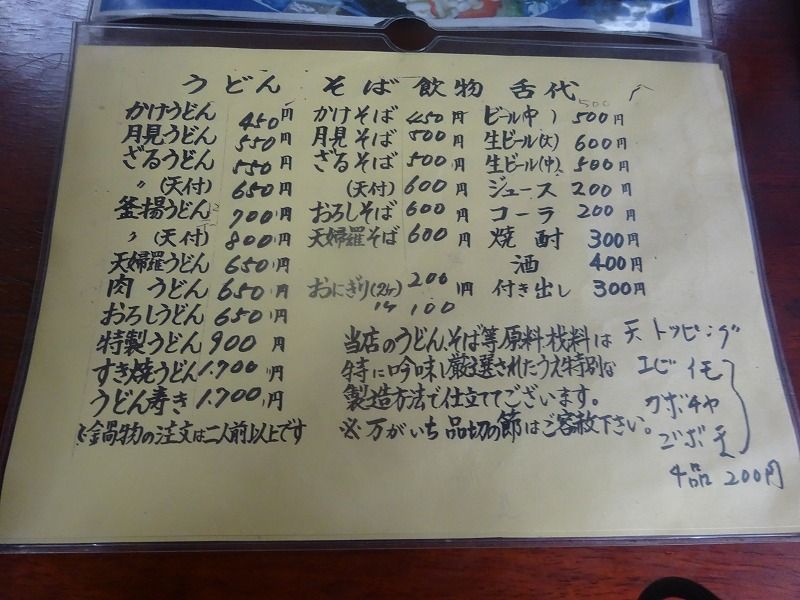 うどん そば 飲物 舌代
かけうどん 450円
月見うどん 550円
ざるうどん 550円
〃(天付) 650円
釜揚うどん 700円
〃(天付) 800円
天婦羅うどん 650円
肉うどん 650円
おろしうどん 650円
特製うどん 900円
すき焼うどん 1.700円
うどん寿き 1.700円
※鍋物の注文は二人前以上です
かけそば 450円
月見そば 500円
ざるそば 500円
(天付) 600円
おろしそば 600円
天婦羅そば 600円
おにぎり(2ケ) 200円
1ケ 100
ビール(中) 500円
生ビール(大) 600円
生ビール(中) 500円
ジュース 200円
コーラ 200円
焼酎 300円
酒 400円
付き出し 300円
当店のうどん、そば等原料材料は
特に吟味し厳選されたうえ特別な
製造方法で仕立ててございます。
※万がいち品切の節はご容赦下さい。
天トッピング
エビ イモ
カボチャ
ゴボ天
4品 200円